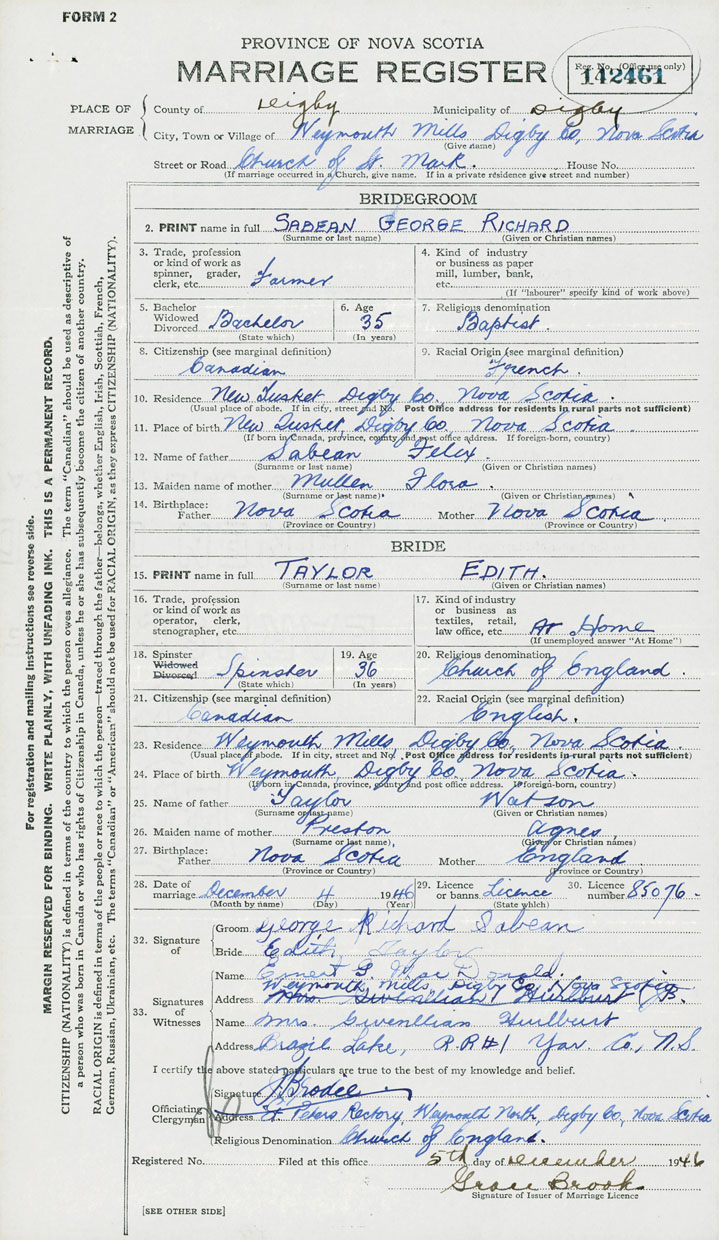 FORM 2
PROVINCE OF NOVA SCOTIA
MARRIAGE REGISTER
Reg. No. (Office use only)
142461
PLACE OF MARRIAGE
County of Digby Municipality of Digby
City, Town or Village of Weymouth Mills Digby Co, Nova Scotia
(Give name)
Street or Road Church of St. Mark. House No.
(If marriage occurred in a Church, give name. If in a private residence give street and number)
BRIDEGROOM
2. PRINT name in full SABEAN GEORGE RICHARD
(Surname or last name) (Given or Christian names)
3. Trade, profession or kind of work as spinner, grader, clerk, etc. Farmer
4. Kind of industry or business as paper mill, lumber, bank, etc.
(If "labourer" specify kind of work above)
5. Bachelor Widowed Divorced Bachelor
(State which)
6. Age 35
(In years)
7. Religious denomination
Baptist.
8. Citizenship (see marginal definition)
Canadian
9. Racial Origin (see marginal definition)
French.
10. Residence New Tusket Digby Co. Nova Scotia.
(Usual place of abode. If in city, street and No. Post Office address for residents in rural parts not sufficient)
11. Place of birth New Tusket, Digby Co. Nova Scotia.
(If born in Canada, province, county and post office address. If foreign-born, country)
12. Name of father Sabean Felix.
(Surname or last name) (Given or Christian names)
13. Maiden name of mother Mullen Flora.
(Surname or last name) (Given or Christian names)
14. Birthplace: Father Nova Scotia Mother Nova Scotia.
(Province or Country) (Province or Country)
BRIDE
15. PRINT name in full TAYLOR EDITH.
(Surname or last name) (Given or Christian names)
16. Trade, profession or kind of work as operator, clerk, stenographer, etc.
17. Kind of industry or business as textiles, retail, law office, etc. At Home
(If unemployed answer "At Home")
18. Spinster Widowed Divorced Spinster
(State which)
19. Age 36
(In years)
20. Religious denomination
Church of England.
21. Citizenship (see marginal definition)
Canadian
22. Racial Origin (see marginal definition)
English.
23. Residence Weymouth Mills, Digby Co, Nova Scotia.
(Usual place of abode. If in city, street and No. Post Office address for residents in rural parts not sufficient)
24. Place of birth Weymouth, Digby Co, Nova Scotia.
(If born in Canada, province, county and post office address. If foreign-born, country)
25. Name of father Taylor Watson
(Surname or last name) (Given or Christian names)
26. Maiden name of mother Preston Agnes,
(Surname or last name) (Given or Christian names)
27. Birthplace: Father Nova Scotia Mother England.
(Province or Country) (Province or Country)
28. Date of marriage December 4 1946
(Month by name) (Day) (Year)
29. Licence or banns Licence
(State which)
30. Licence number 85076.
32. Signature of
Groom George Richard Sabean
Bride Edith Taylor
33. Signatures of Witnesses
Name Ernest G. Mac Donald.
Weymouth Mills, Digby Co. Nova Scotia
Address Mrs. Gwenllian Hurlburt
Name Mrs. Gwenllian Hurlburt
Address Brazil Lake, R.R#1 Yar. Co., N.S.
I certify the above stated particulars are true to the best of my knowledge and belief.
Officiating Clergyman
Signature Brodie
Address St Peters Rectory, Weymouth North, Digby Co, Nova Scotia
Religious Denomination Church of England.
Registered No. Filed at this office 5th day of December 1946
Grace Brook
Signature of Issuer of Marriage Licence
[SEE OTHER SIDE]
For registration and mailing instructions see reverse side.
MARGIN RESERVED FOR BINDING. WRITE PLAINLY, WITH UNFADING INK. THIS IS A PERMANENT RECORD.
CITIZENSHIP (NATIONALITY) is defined in terms of the country to which the person owes allegiance. The term "Canadian" should be used as descriptive of
a person who was born in Canada or who has rights of Citizenship in Canada, unless he or she has subsequently become the citizen of another country.
RACIAL ORIGIN is defined in terms of the people or race to which the person—traced through the father—belongs, whether English, Irish, Scottish, French,
German, Russian, Ukrainian, etc. The terms "Canadian" or "American" should not be used for RACIAL ORIGIN, as they express CITIZENSHIP (NATIONALITY).